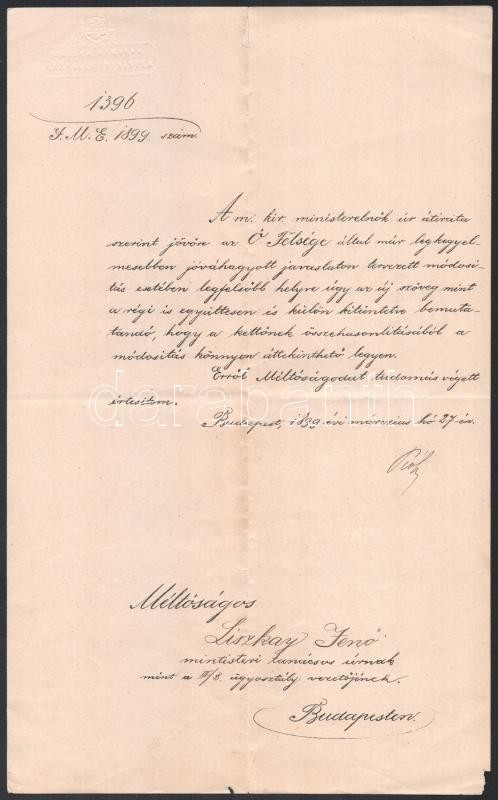 1396
I. M. E. 1899. szám.
A m. kir. ministerelnök úr átirata
szerint jövőre az Ő Felsége által már legkegyel-
mesebben jóváhagyott javaslaton tervezett módosi-
tás esetében legfelsőbb helyre úgy az új szöveg mint
a régi is együttesen és külön kitüntetve bemuta-
tandó, hogy a kettőnek összehasonlításából a
módosítás könnyen áttekinthető legyen.
Erről Méltóságodat tudomás végett
értesitem.
Budapest, 1899 évi március hó 27-én.
darabanth.com
Méltóságos
Liszkay Jenő
ministeri tanácsos úrnak
mint a III/8. ügyosztály vezetőjének.
Budapesten.